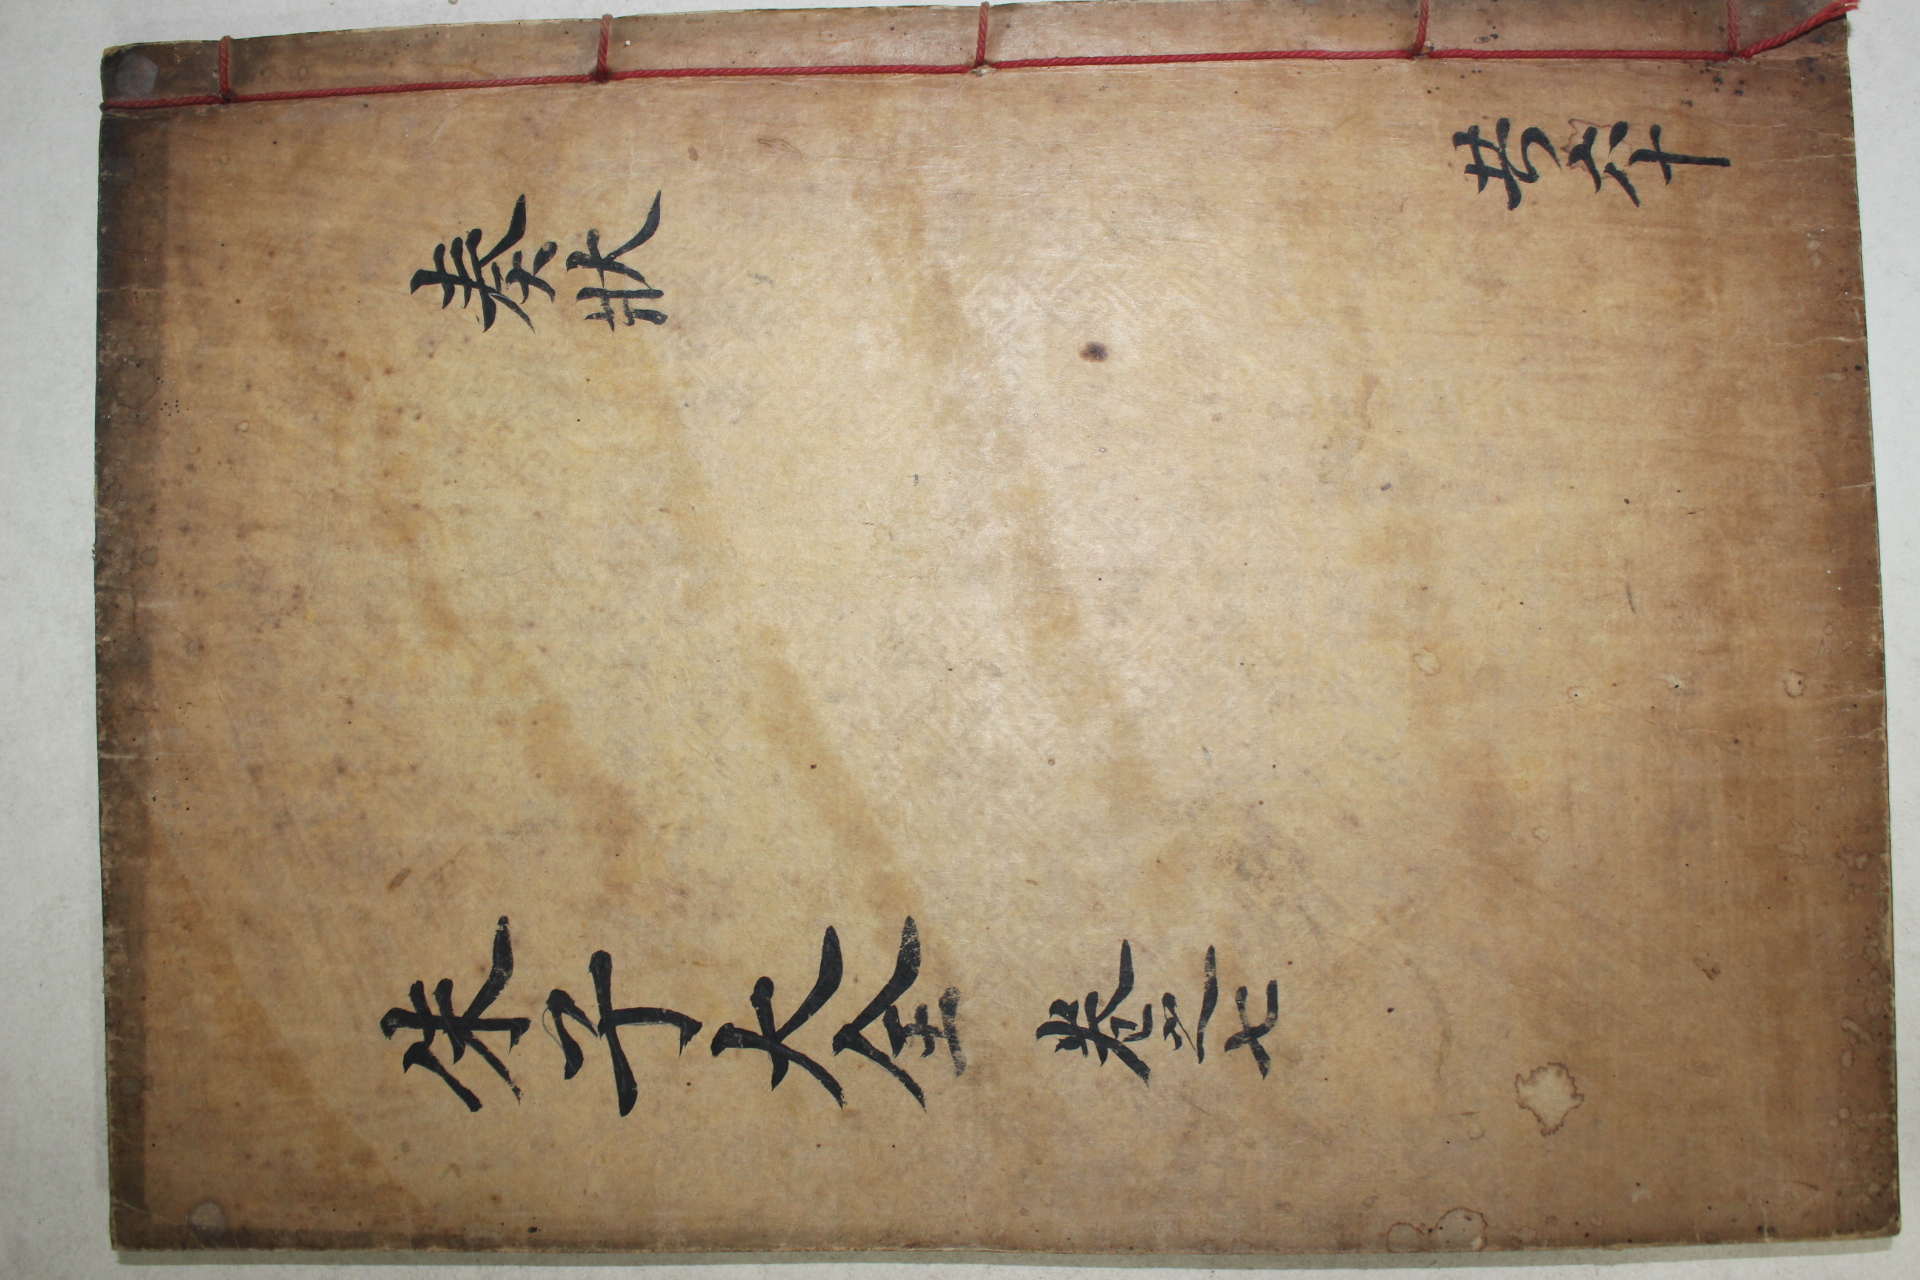 朱子大全 卷之七
奏狀
共六十